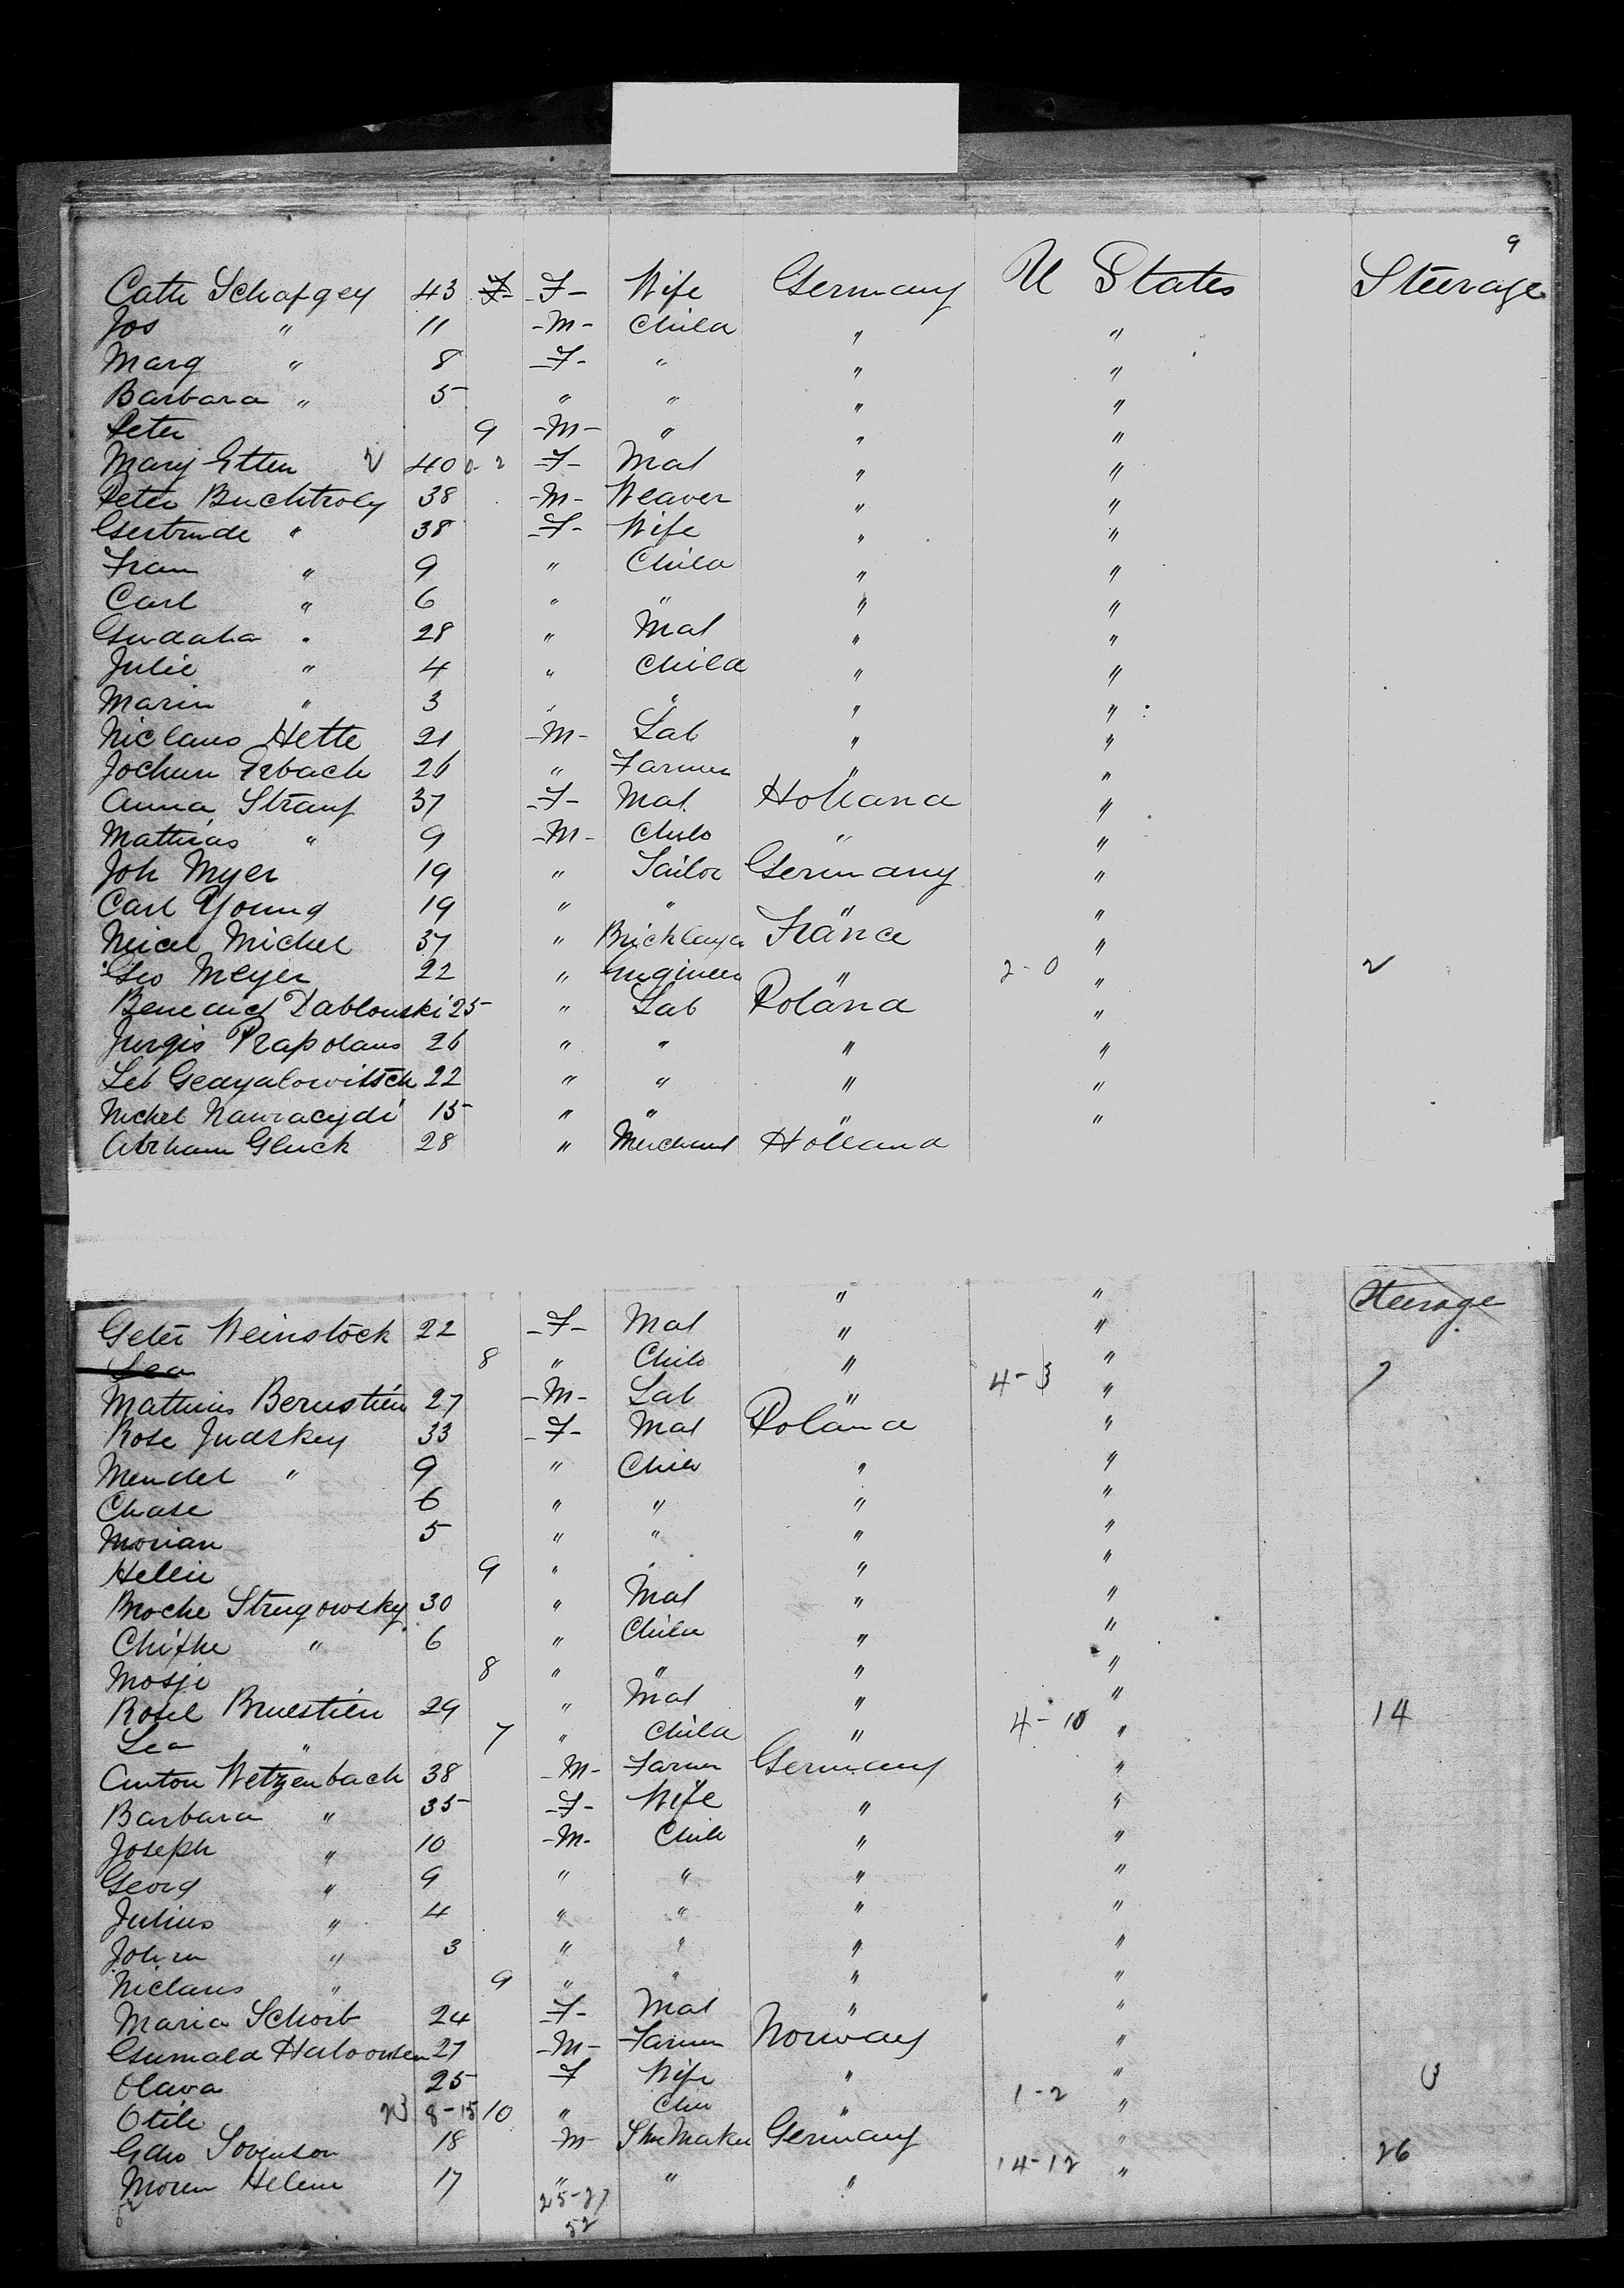 9
Cath Schafgey 43 F F Wife Germany U States Steerage
Jos " 11 M Child " "
Marg " 8 F " " "
Barbara " 5 " " " "
Peter 9 M " " "
Mary Etten V 40 0-2 F Mat " "
Peter Buchtroly 38 M Weaver " "
Gertrude " 38 F Wife " "
Fran " 9 " Child " "
Carl " 6 " " " "
" 28 " Mat " "
Julie " 4 " Child " "
Marin " 3 " " " "
Niclaus Hette 21 M Lab " "
Jochum Erbach 26 " Farmer " "
Anna Strauf 37 F Mat Holland "
Mathias " 9 M Child " "
Joh Myer 19 " Tailor Germany "
Carl Young 19 " " " "
Michel 37 " Bricklayer France "
Geo Meyer 22 " Engineer " 2-0 " 2
Benedict Dablouski 25 " Lab Poland "
Jurgis Prapolaus 26 " " " "
Leb Gedyalowitsch 22 " " " "
Michel Nawracydi 15 " " " "
Abraham Gluck 28 " Merchant Holland
" " Steerage
Geter Weinstock 22 F Mat " "
Lea 8 " Child " "
Mathius Bernstien 27 M Lab " 4-3 " 7
Rose Judskey 33 F Mat Poland "
Mendel " 9 " Child " "
Chase 6 " " " "
Morian 5 " " " "
Hellie 9 " " " "
Broche Strugowsky 30 " Mat " "
Chifke " 6 " Child " "
Mosje 8 " " " "
Rosel Bruestien 29 " Mat " "
Lea " 7 " Child " 4-10 " 14
Anton Wetzenbach 38 M Farmer Germany "
Barbara " 35 F Wife " "
Joseph " 10 M Child " "
Georg " 9 " " " "
Julius " 4 " " " "
Johan " 3 " " " "
Niclaus " 9 " " " "
Maria Schorb 24 F Mat " "
Gumald 27 M Farmer Norway "
Olava 25 F Wife " "
Otile 23 8-15 10 " Child " 1-2 " 3
Sovenson 18 M ShoeMaker Germany "
Moren Helene 17 " " " 14-12 " 26
25-27
52